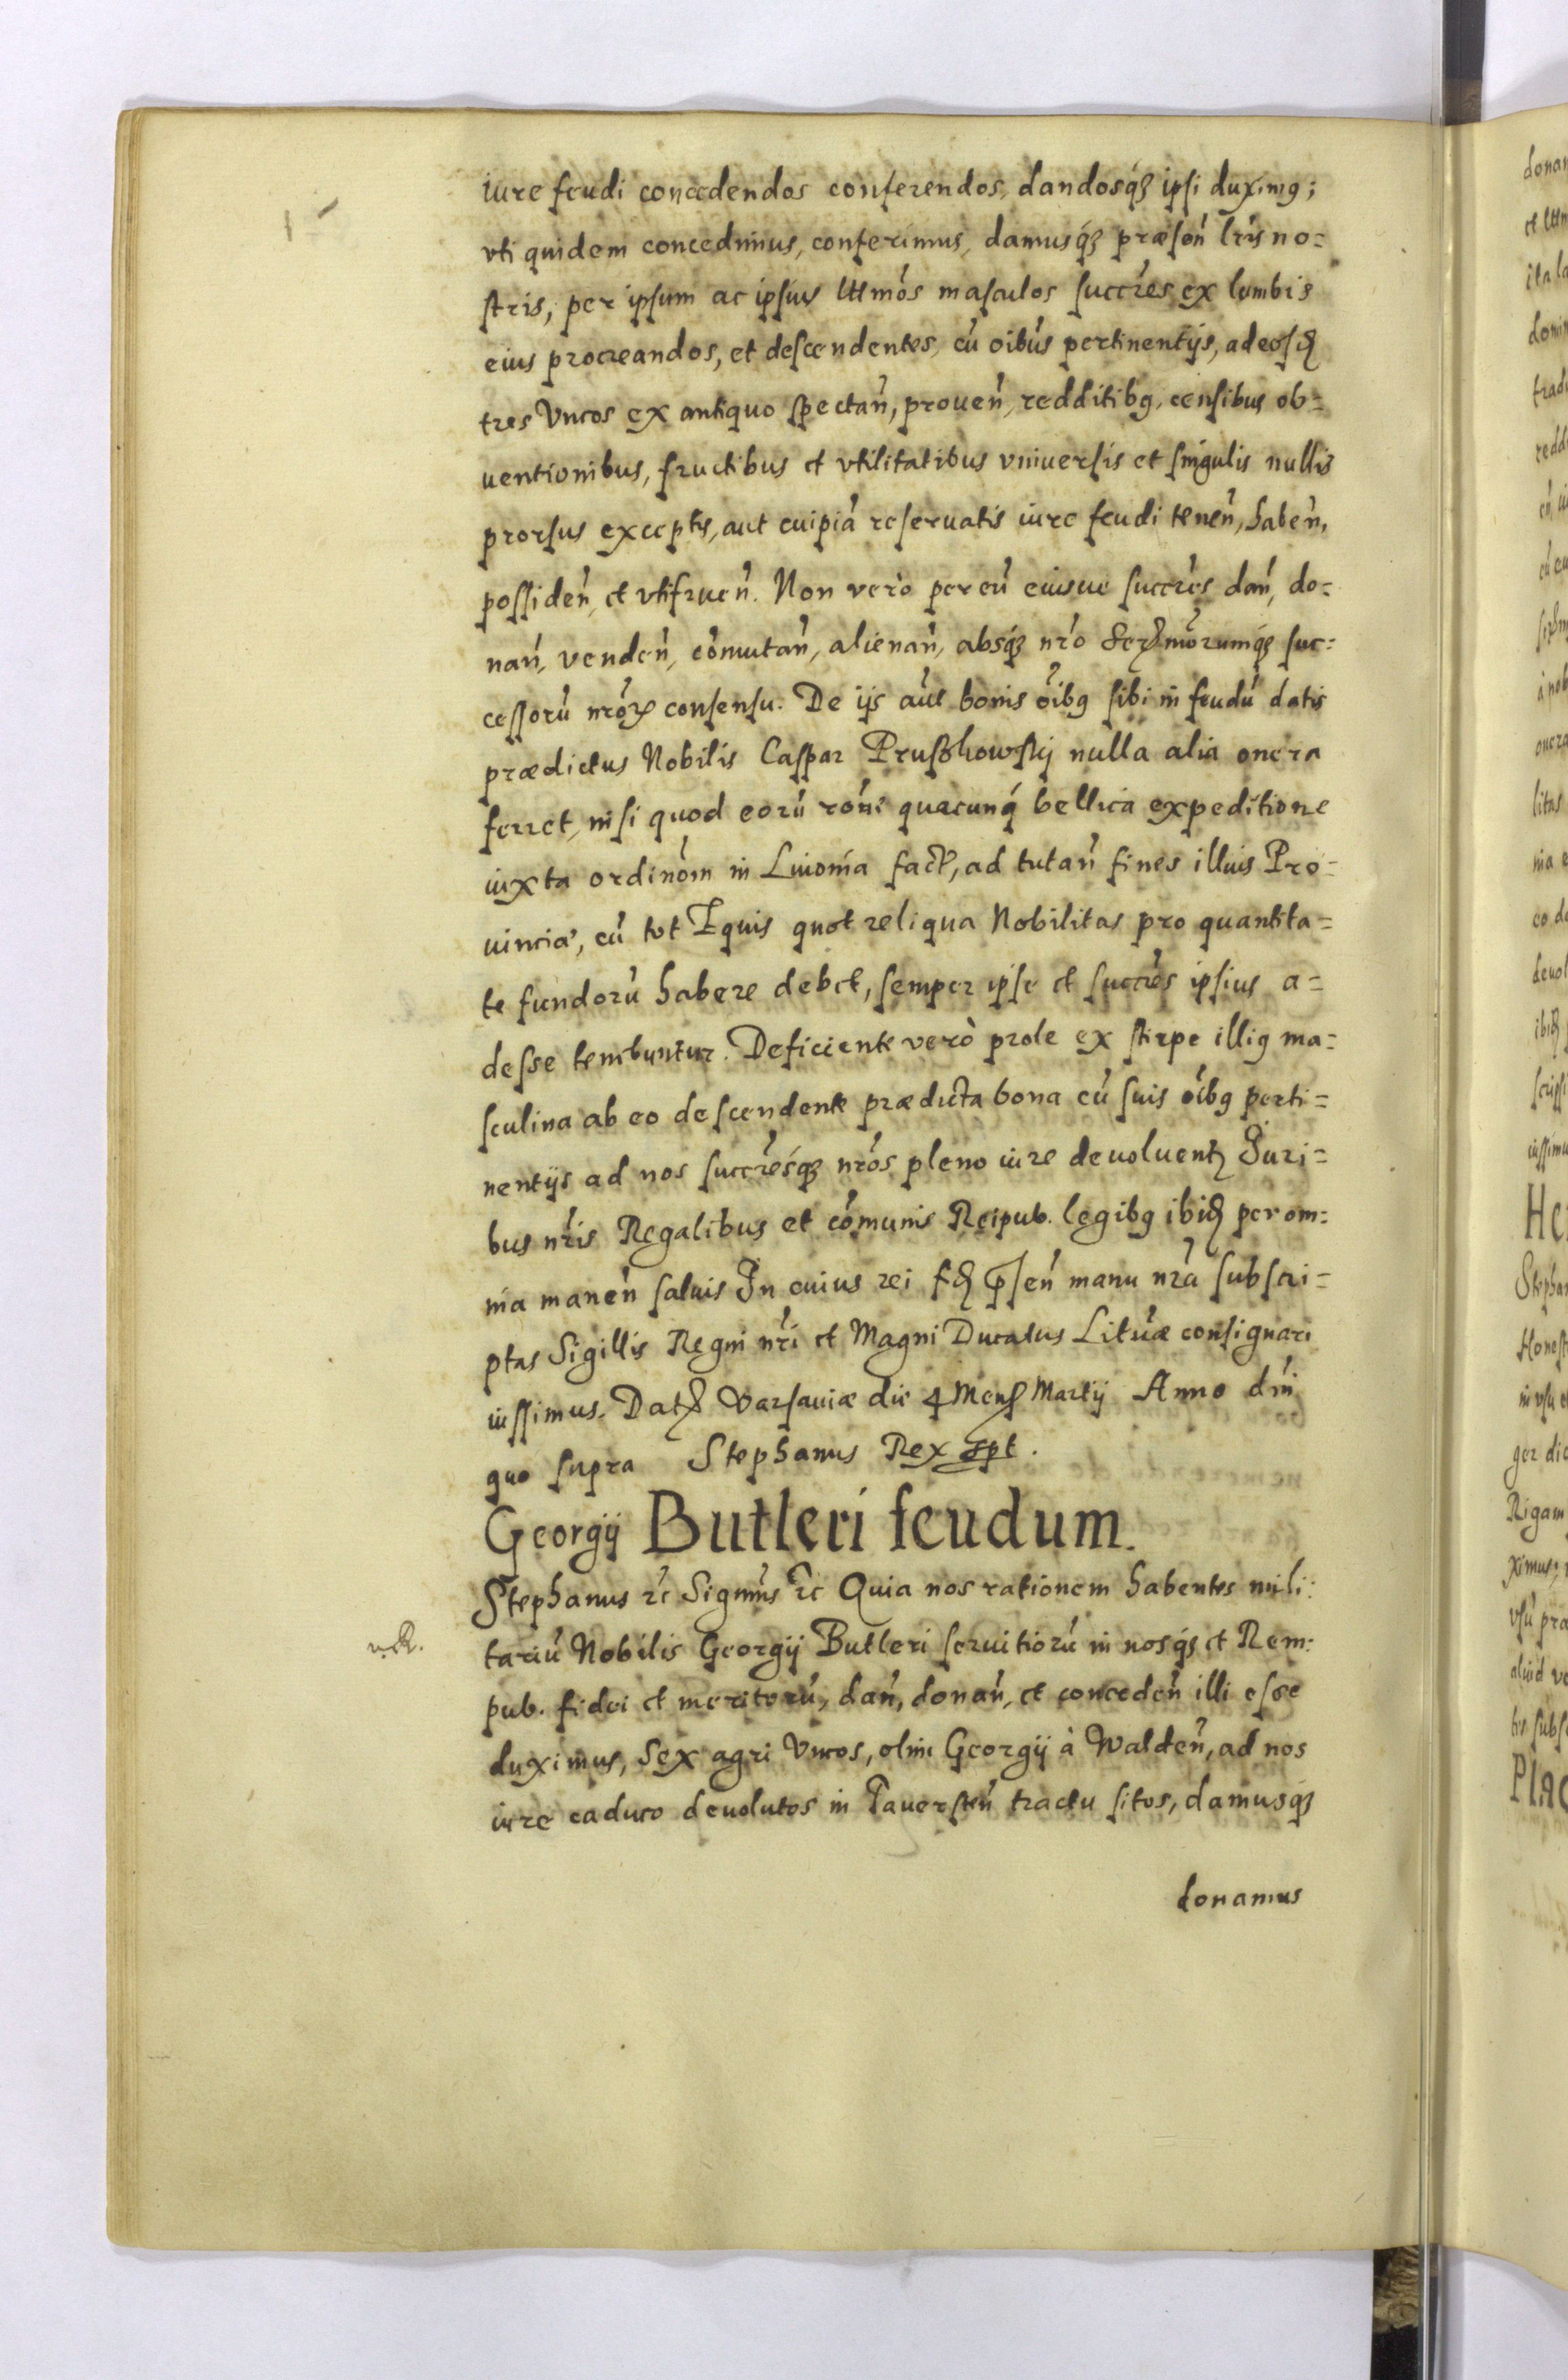 iure feudi concedendos conferendos, dandosq́ꝫ ipsi duximꝰ;
vti quidem concedimus, conferimus, damusq́ꝫ præsen̄ lr̄is no=
stris, per ipsum ac ipsius lttmōs masculos succr̄es ex lumbis
eius procreandos, et descendentes, cū oībus pertinentijs, ad eosdꝫ
tres Vncos ex antiquo spectan̄, prouen̄, redditibꝰ, censibus ob=
uentionibus, fructibus et vtilitatibus vniuersis et singulis nullis
prorsus exceptis, aut cuipiā reseruatis iure feudi tenen̄, haben̄,
possiden̄, et vtifruen̄. Non verò per eū eiusue succr̄es dan̄, do=
nan̄, venden̄, cōmutan̄, alienan̄, absq́ꝫ nr̄o Serꝫmōrumq́ꝫ suc=
cessorū nr̄oꝝ consensu. De ijs aūt bonis oībꝰ sibi in feudū datis
prædictus Nobilis Caspar Pruszkowskij nulla alia onera
ferret, nisi quod eorū rōne quacunq́ bellica expeditione
iuxta ordinōm in Liuonia factꝫ, ad tutan̄ fines illius Pro=
uinciæ, cū tot Equis quot reliqua Nobilitas pro quantita=
te fundorū habere debet, semper ipse et succr̄es ipsius a=
desse tenibuntur. Deficiente verò prole ex stirpe illiꝰ ma=
sculina ab eo descendente prædicta bona cū suis oībꝰ perti=
nentijs ad nos succr̄esq́ꝫ nr̄os pleno iure deuoluentꝫ Juri=
bus nr̄is Regalibus et cōmunis Reipub. legibꝰ ibidꝫ per om=
nia manen̄ saluis In cuius rei fdꝫ p̄sen̄ manu nr̄a subscri=
ptas Sigillis Regni nr̄i et Magni Ducatus Lituæ consignari
iussimus. Datꝫ Varsauiæ die 4 Mensꝫ Martij Anno dn̄i
quo supra Stephanus Rex sspt.
Georgij Butleri feudum.
Stephanus ꝛc Signm̄s ꝛc Quia nos rationem habentes mili:
tariū Nobilis Georgij Butleri seruitiorū in nosq́ꝫ et Rem:
pub. fidei et meritorū, dan̄, donan̄, et conceden̄ illi esse
duximus, Sex agri Vncos, olim Georgij à Walden̄, ad nos
iure caduco deuolutos in Pauersten̄ tractu sitos, damusq́ꝫ
donamus